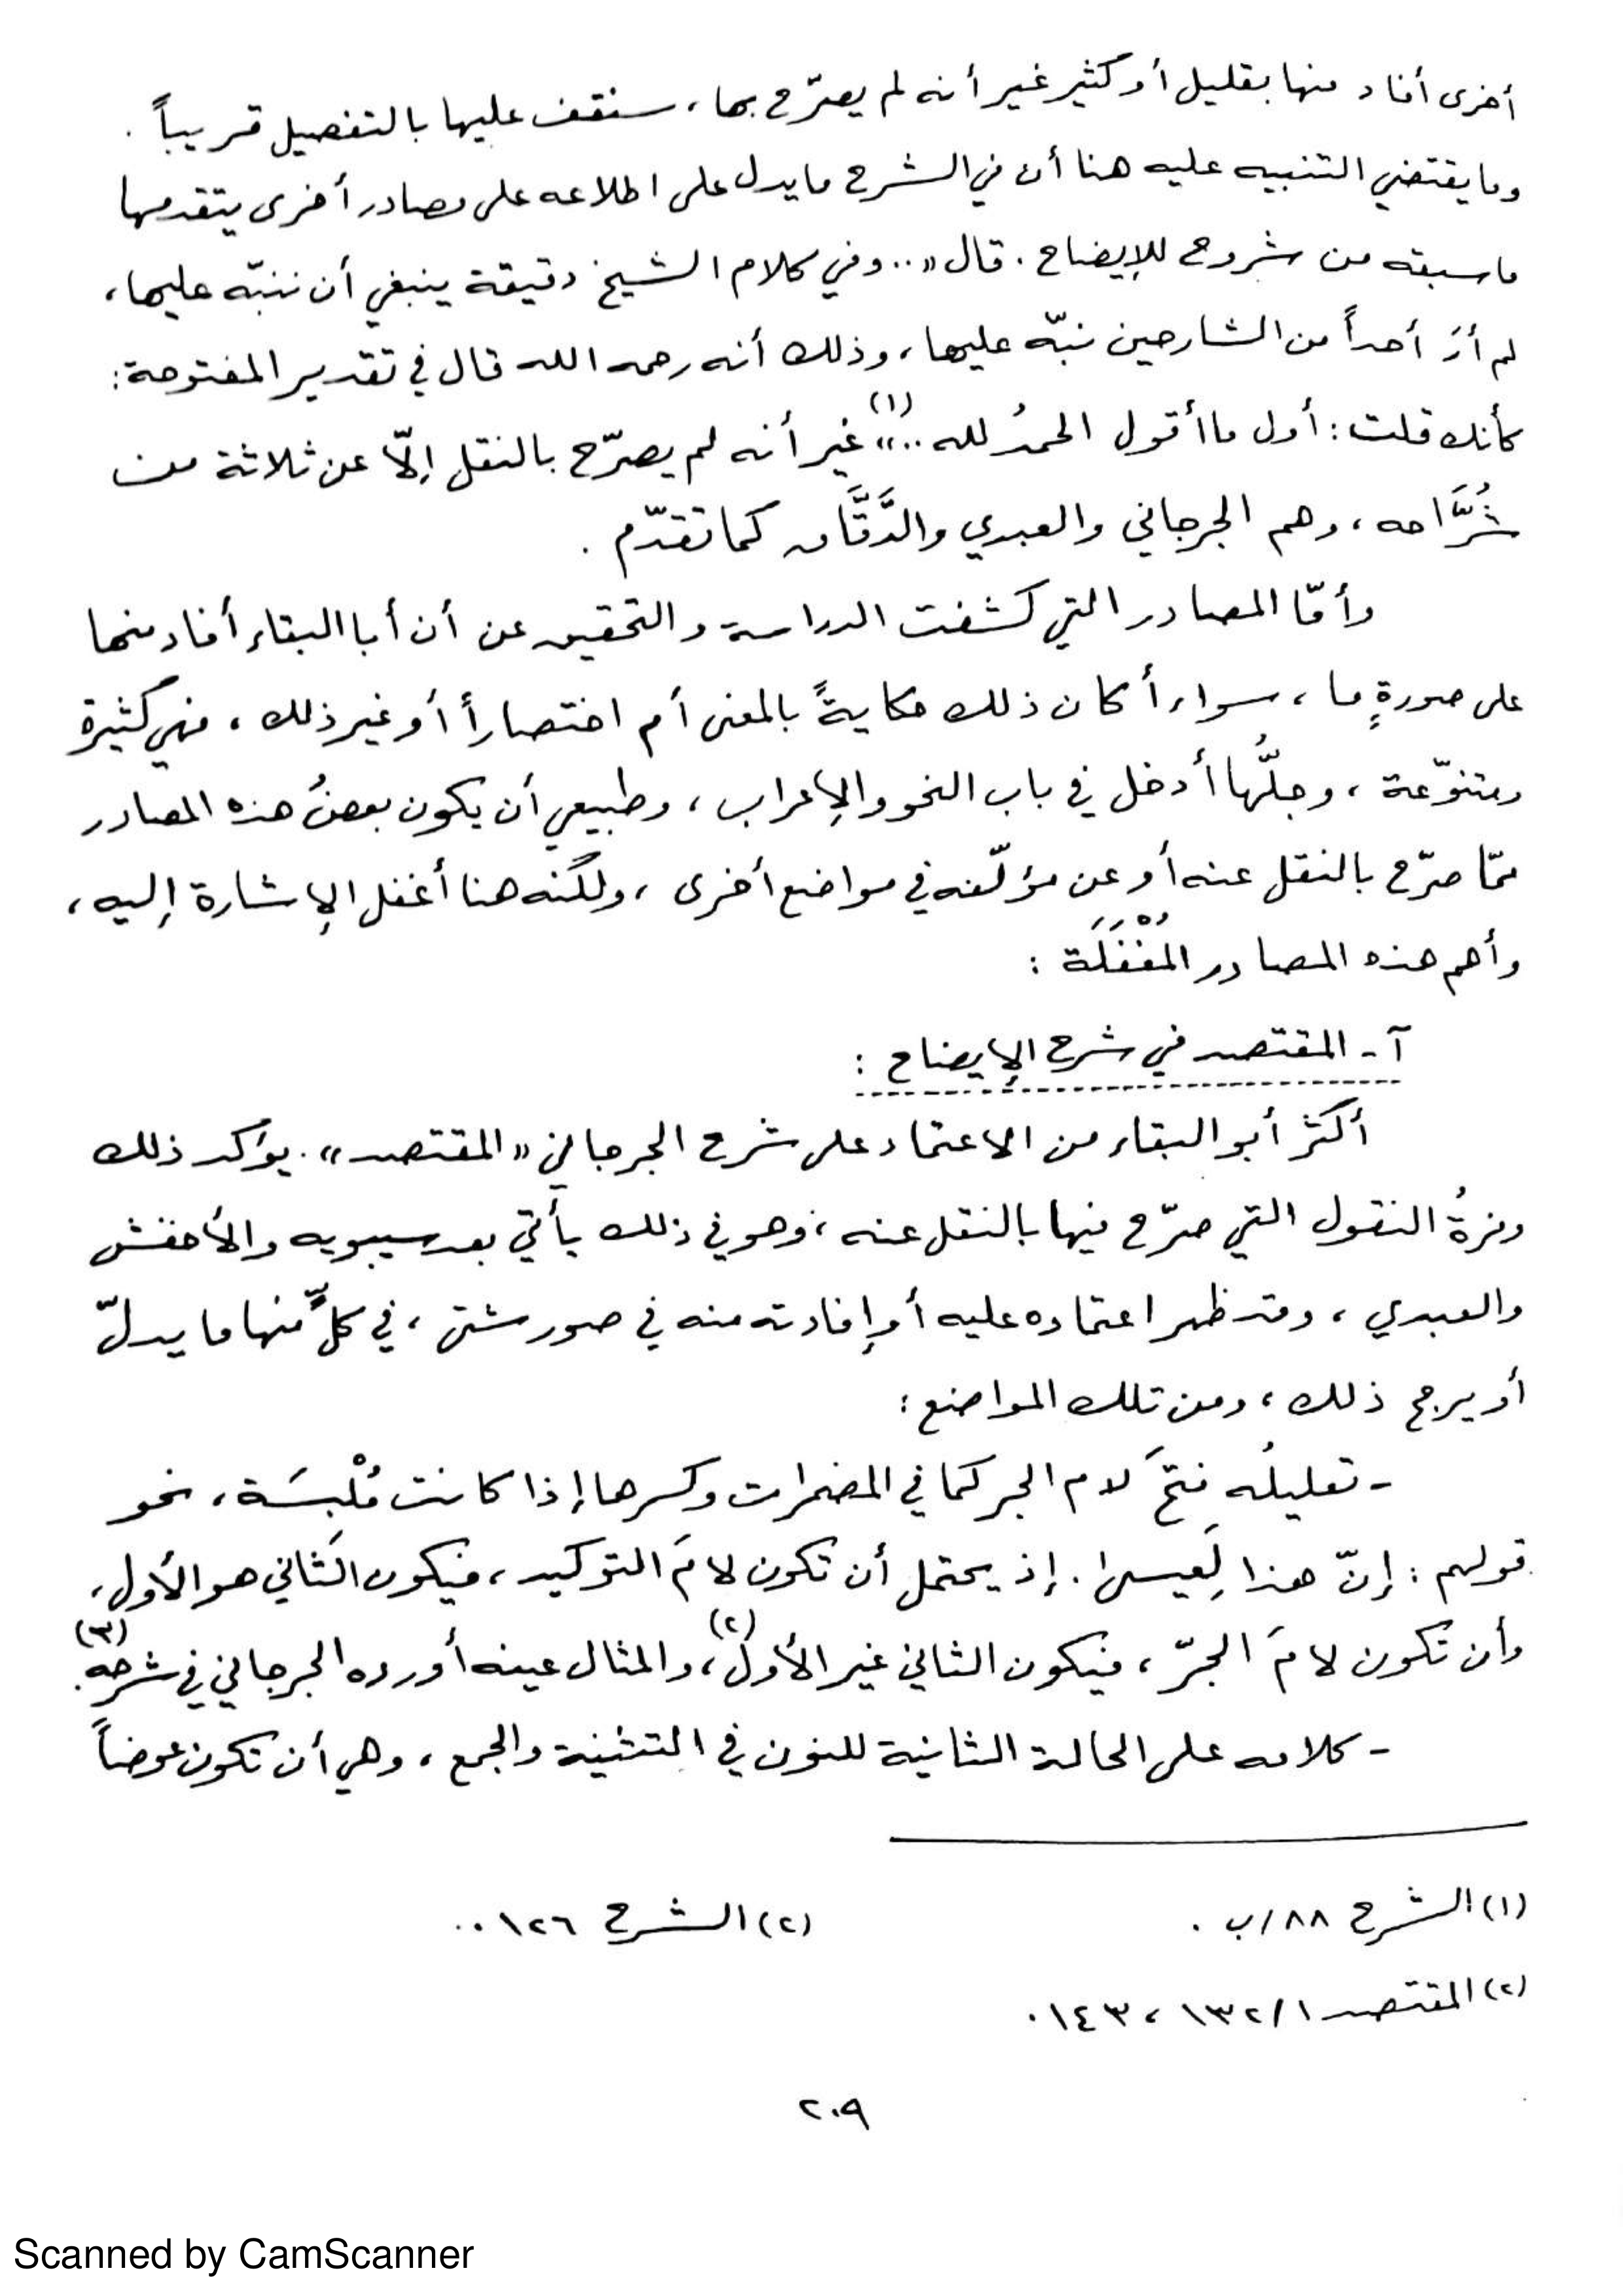 أخرى أفاد منها بقليل أو كثير غير أنه لم يصرّح بها، سنقف عليها بالتفصيل قريباً .
وما يقتضي التنبيه عليه هنا أن في الشرح ما يدل على اطلاعه على مصادر أخرى يتقدمها
ما سبقه من شروح للإيضاح . قال «.. وفي كلام الشيخ دقيقة ينبغي أن ننبّه عليها،
لم أرَ أحداً من الشارحين نبّه عليها، وذلك أنه رحمه الله قال في تقدير المفتوحة:
كأنك قلت: أول ما أقول الحمدُ لله ..»(١) غير أنه لم يصرّح بالنقل إلّا عن ثلاثة من
شُرَّاحه، وهم الجرجاني والعبدي والدَّقَّاق كما تقدّم .
وأمّا المصادر التي كشفت الدراسة والتحقيق عن أن أبا البقاء أفاد منها
على صورةٍ ما، سواء أكان ذلك حكايةً بالمعنى أم اختصاراً أو غير ذلك، فهي كثيرة
ومتنوّعة، وجلُّها أدخل في باب النحو والإعراب، وطبيعي أن يكون بعضُ هذه المصادر
ممّا صرّح بالنقل عنه أو عن مؤلّفه في مواضع أخرى، ولكنه هنا أغفل الإشارة إليه،
وأهم هذه المصادر المُغْفَلَة :
آ - المقتصد في شرح الإيضاح :
أكثرَ أبو البقاء من الاعتماد على شرح الجرجاني «المقتصد». يؤكد ذلك
وفرةُ النقول التي صرّح فيها بالنقل عنه، وهو في ذلك يأتي بعد سيبويه والأخفش
والعبدي، وقد ظهر اعتماده عليه أو إفادته منه في صور شتى، في كلٍّ منها ما يدلّ
أو يرجح ذلك، ومن تلك المواضع:
- تعليلُه فتحَ لام الجر كما في المضمرات وكسرها إذا كانت مُلْبِسَة، نحو
قولهم : إنّ هذا لِعيسى . إذ يحتمل أن تكون لامَ التوكيد، فيكون الثاني هو الأول،
وأن تكون لامَ الجرّ، فيكون الثاني غير الأول(٢)، والمثال عينه أورده الجرجاني في شرحه(٣).
- كلامه على الحالة الثانية للنون في التثنية والجمع، وهي أن تكون عوضاً
(١) الشرح ٨٨/ب .
(٢) الشرح ١٢٦ .
(٢) المقتصد ١٣٢/١، ١٤٣ .
٢٠٩
Scanned by CamScanner